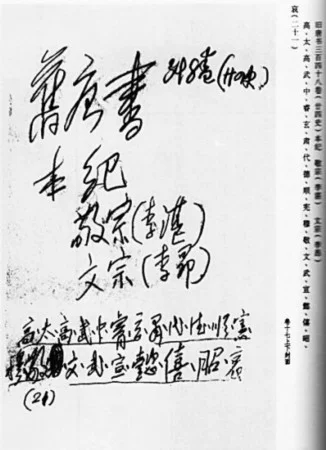 旧唐书三百四十八卷(廿四史)本纪 敬宗(李湛) 文宗(李昂)
高、太、高、武、中、睿、玄、肃、代、德、顺、宪、穆、敬、文、武、宣、懿、僖、昭、
哀(二十一)
卷十七上下封面
舊唐書 348卷(廿四史)
本纪
敬宗(李湛)
文宗(李昂)
高、太、高、武、中、睿、玄、肃、代、德、顺、宪
穆、敬、文、武、宣、懿、僖、昭、哀
(21)